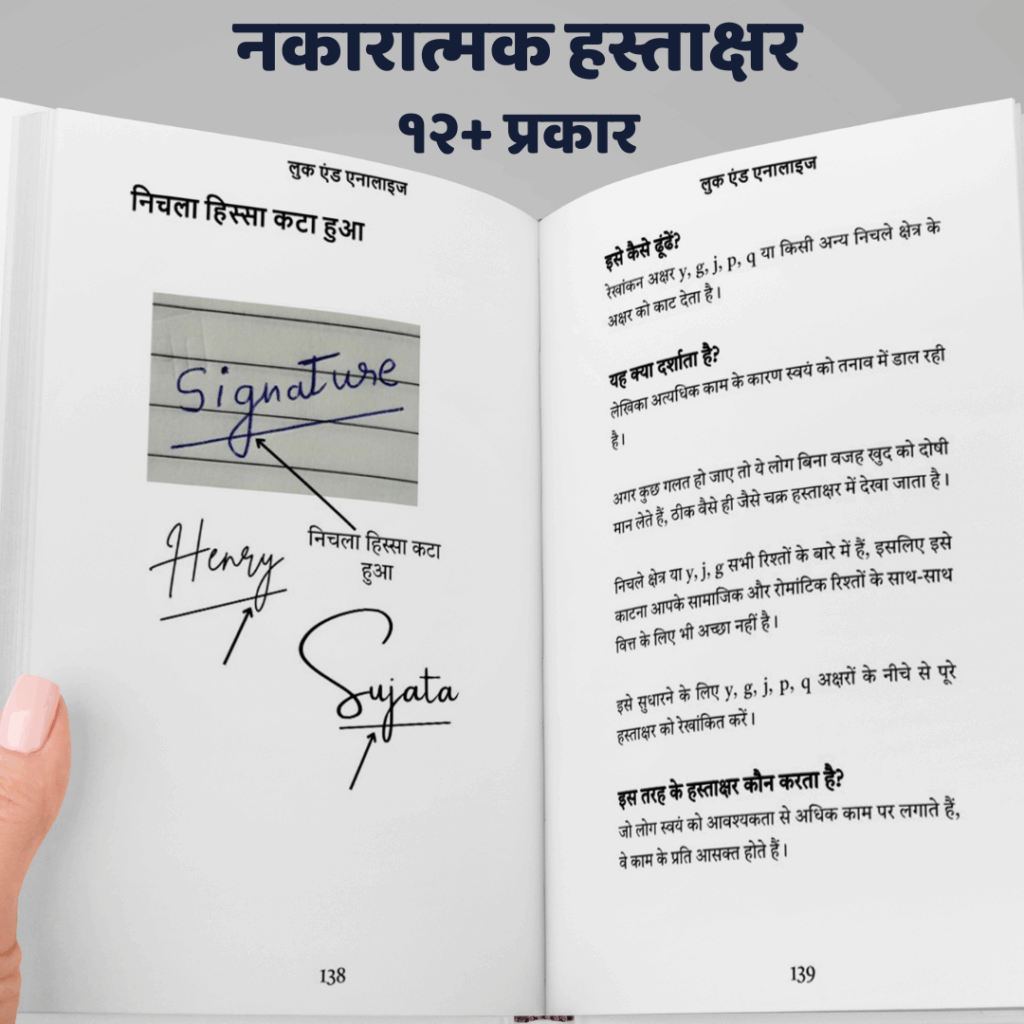 नकारात्मक हस्ताक्षर
१२+ प्रकार
लुक एंड एनालाइज
निचला हिस्सा कटा हुआ
Signature
निचला हिस्सा कटा
हुआ
Henry
Sujata
138
लुक एंड एनालाइज
इसे कैसे ढूंढें?
रेखांकन अक्षर y, g, j, p, q या किसी अन्य निचले क्षेत्र के
अक्षर को काट देता है।
यह क्या दर्शाता है?
लेखिका अत्यधिक काम के कारण स्वयं को तनाव में डाल रही
है।
अगर कुछ गलत हो जाए तो ये लोग बिना वजह खुद को दोषी
मान लेते हैं, ठीक वैसे ही जैसे चक्र हस्ताक्षर में देखा जाता है।
निचले क्षेत्र या y, j, g सभी रिश्तों के बारे में हैं, इसलिए इसे
काटना आपके सामाजिक और रोमांटिक रिश्तों के साथ-साथ
वित्त के लिए भी अच्छा नहीं है।
इसे सुधारने के लिए y, g, j, p, q अक्षरों के नीचे से पूरे
हस्ताक्षर को रेखांकित करें।
इस तरह के हस्ताक्षर कौन करता है?
जो लोग स्वयं को आवश्यकता से अधिक काम पर लगाते हैं,
वे काम के प्रति आसक्त होते हैं।
139